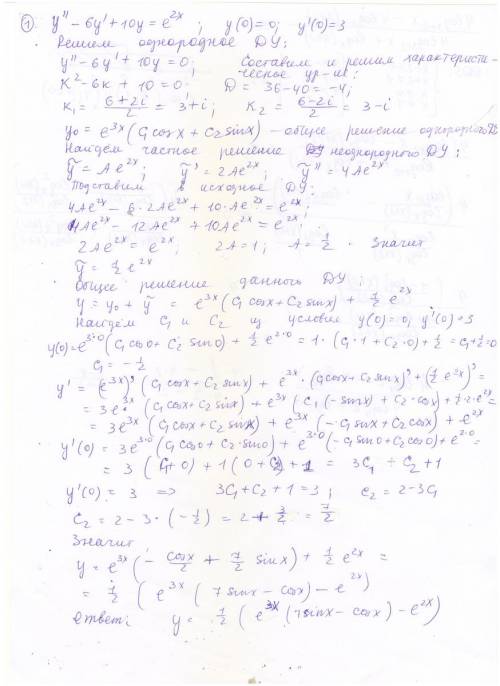 ① y'' - 6y' + 10y = e^{2x} ; y(0) = 0; y'(0) = 3
Решим однородное ДУ:
y'' - 6y' + 10y = 0; Составим и решим характеристи-
K² - 6K + 10 = 0; ческое ур-ие: D = 36 - 40 = -4;
K₁ = (6+2i)/2 = 3+i; K₂ = (6-2i)/2 = 3-i
y₀ = e^{3x} (C₁ cosx + C₂ sinx) - общее решение однородного ДУ
Найдём частное решение неоднородного ДУ:
ỹ = Ae^{2x}; ỹ' = 2Ae^{2x}; ỹ'' = 4Ae^{2x}
Подставим в исходное ДУ:
4Ae^{2x} - 6·2Ae^{2x} + 10·Ae^{2x} = e^{2x};
4Ae^{2x} - 12Ae^{2x} + 10Ae^{2x} = e^{2x}
2Ae^{2x} = e^{2x}; 2A = 1; A = 1/2. Значит
ỹ = 1/2 e^{2x}
Общее решение данного ДУ:
y = y₀ + ỹ = e^{3x} (C₁ cosx + C₂ sinx) + 1/2 e^{2x}
Найдём C₁ и C₂ из условия y(0) = 0, y'(0) = 3
y(0) = e^{3·0} (C₁ cos0 + C₂ sin0) + 1/2 e^{2·0} = 1·(C₁·1 + C₂·0) + 1/2 = C₁ + 1/2 = 0
C₁ = -1/2
y' = (e^{3x})' (C₁ cosx + C₂ sinx) + e^{3x}·(C₁ cosx + C₂ sinx)' + (1/2 e^{2x})' =
= 3e^{3x} (C₁ cosx + C₂ sinx) + e^{3x} (C₁ (-sinx) + C₂·cosx) + 1/2·2·e^{2x} =
= 3e^{3x} (C₁ cosx + C₂ sinx) + e^{3x} (-C₁ sinx + C₂ cosx) + e^{2x}
y'(0) = 3e^{3·0} (C₁ cos0 + C₂·sin0) + e^{3·0} (-C₁ sin0 + C₂ cos0) + e^{2·0} =
= 3 (C₁ + 0) + 1 (0 + C₂) + 1 = 3C₁ + C₂ + 1
y'(0) = 3 => 3C₁ + C₂ + 1 = 3; C₂ = 2 - 3C₁
C₂ = 2 - 3·(-1/2) = 2 + 3/2 = 7/2
Значит
y = e^{3x} (- cosx/2 + 7/2 sinx) + 1/2 e^{2x} =
= 1/2 (e^{3x} (7 sinx - cosx) - e^{2x})
Ответ: y = 1/2 (e^{3x} (7sinx - cosx) - e^{2x})